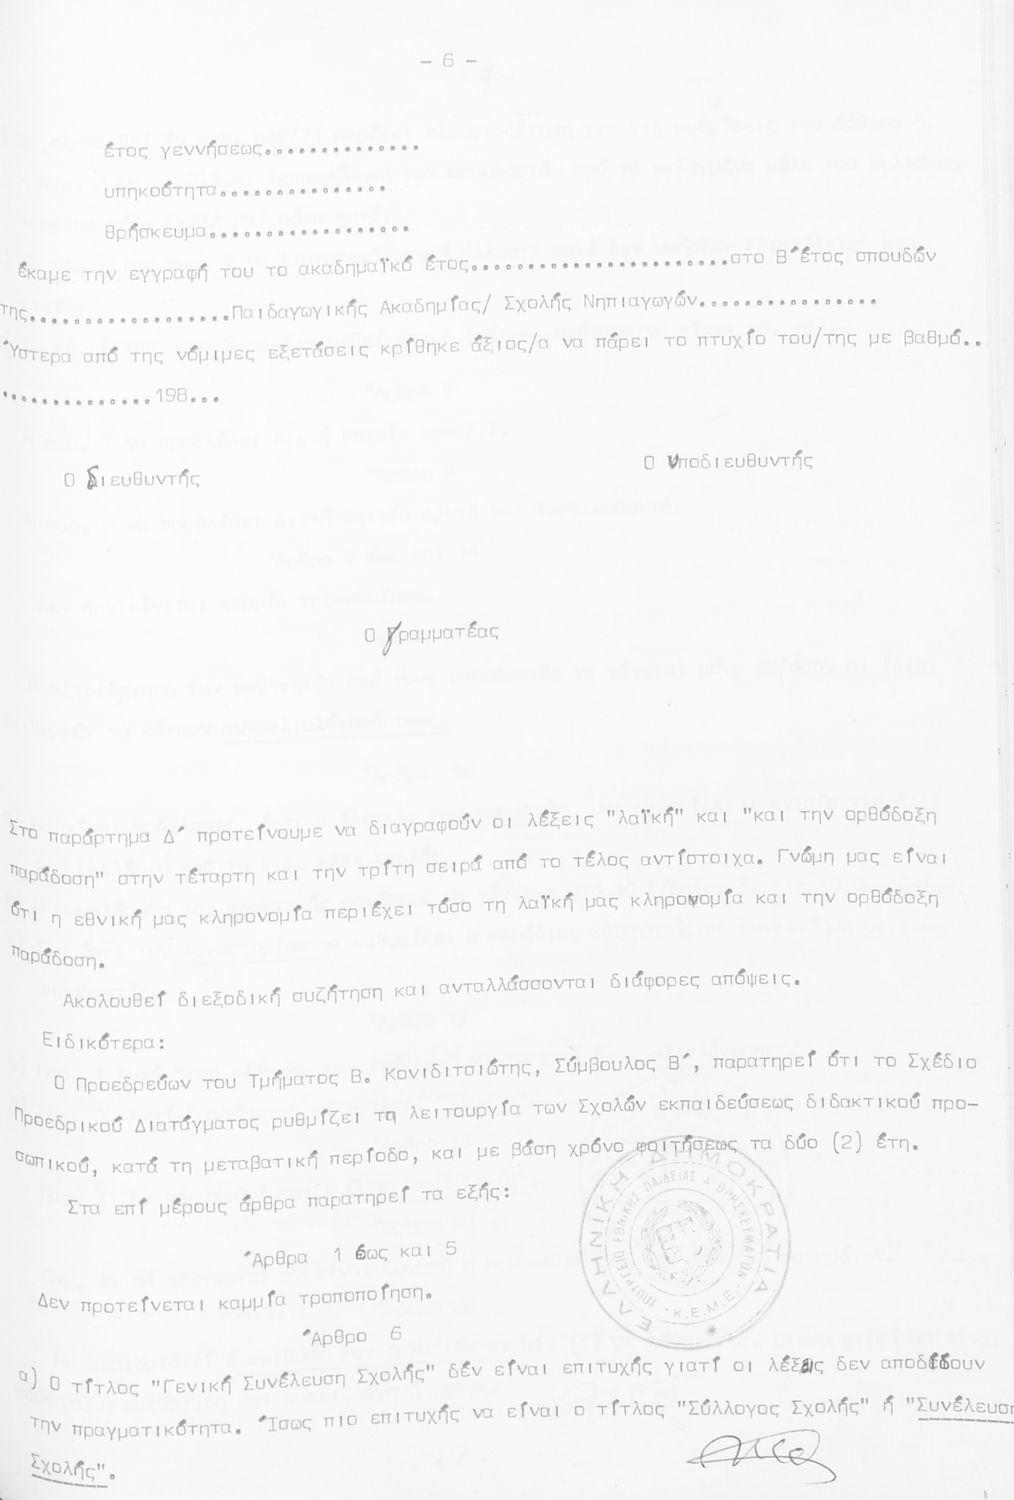 - 6 -
έτος γεννήσεως..............
υπηκοότητα...............
θρήσκευμα..................
έκαμε την εγγραφή του το ακαδημαϊκό έτος.......................στο Β΄έτος σπουδών
της..................Παιδαγωγικής Ακαδημίας/ Σχολής Νηπιαγωγών................
Ύστερα από της νόμιμες εξετάσεις κρίθηκε άξιος/α να πάρει το πτυχίο του/της με βαθμό..
..............198...
Ο Υποδιευθυντής
Ο Διευθυντής
Ο Γραμματέας
Στο παράρτημα Δ΄ προτείνουμε να διαγραφούν οι λέξεις "λαϊκή" και "και την ορθόδοξη
παράδοση" στην τέταρτη και την τρίτη σειρά από το τέλος αντίστοιχα. Γνώμη μας είναι
ότι η εθνική μας κληρονομία περιέχει τόσο τη λαϊκή μας κληρονομία και την ορθόδοξη
παράδοση.
Ακολουθεί διεξοδική συζήτηση και ανταλλάσσονται διάφορες απόψεις.
Ειδικότερα:
Ο Προεδρεύων του Τμήματος Β. Κονιδιτσιώτης, Σύμβουλος Β΄, παρατηρεί ότι το Σχέδιο
Προεδρικού Διατάγματος ρυθμίζει τη λειτουργία των Σχολών εκπαιδεύσεως διδακτικού προ-
σωπικού, κατά τη μεταβατική περίοδο, και με βάση χρόνο φοιτήσεως τα δύο (2) έτη.
Στα επί μέρους άρθρα παρατηρεί τα εξής:
Άρθρα 1 έως και 5
Δεν προτείνεται καμμία τροποποίηση.
Άρθρο 6
α) Ο τίτλος "Γενική Συνέλευση Σχολής" δέν είναι επιτυχής γιατί οι λέξεις δεν αποδίδουν
την πραγματικότητα. Ίσως πιο επιτυχής να είναι ο τίτλος "Σύλλογος Σχολής" ή "Συνέλευση
Σχολής".
ΕΛΛΗΝΙΚΗ ΔΗΜΟΚΡΑΤΙΑ
ΥΠΟΥΡΓΕΙΟ ΕΘΝΙΚΗΣ ΠΑΙΔΕΙΑΣ & ΘΡΗΣΚΕΥΜΑΤΩΝ
Κ.Ε.Μ.Ε.